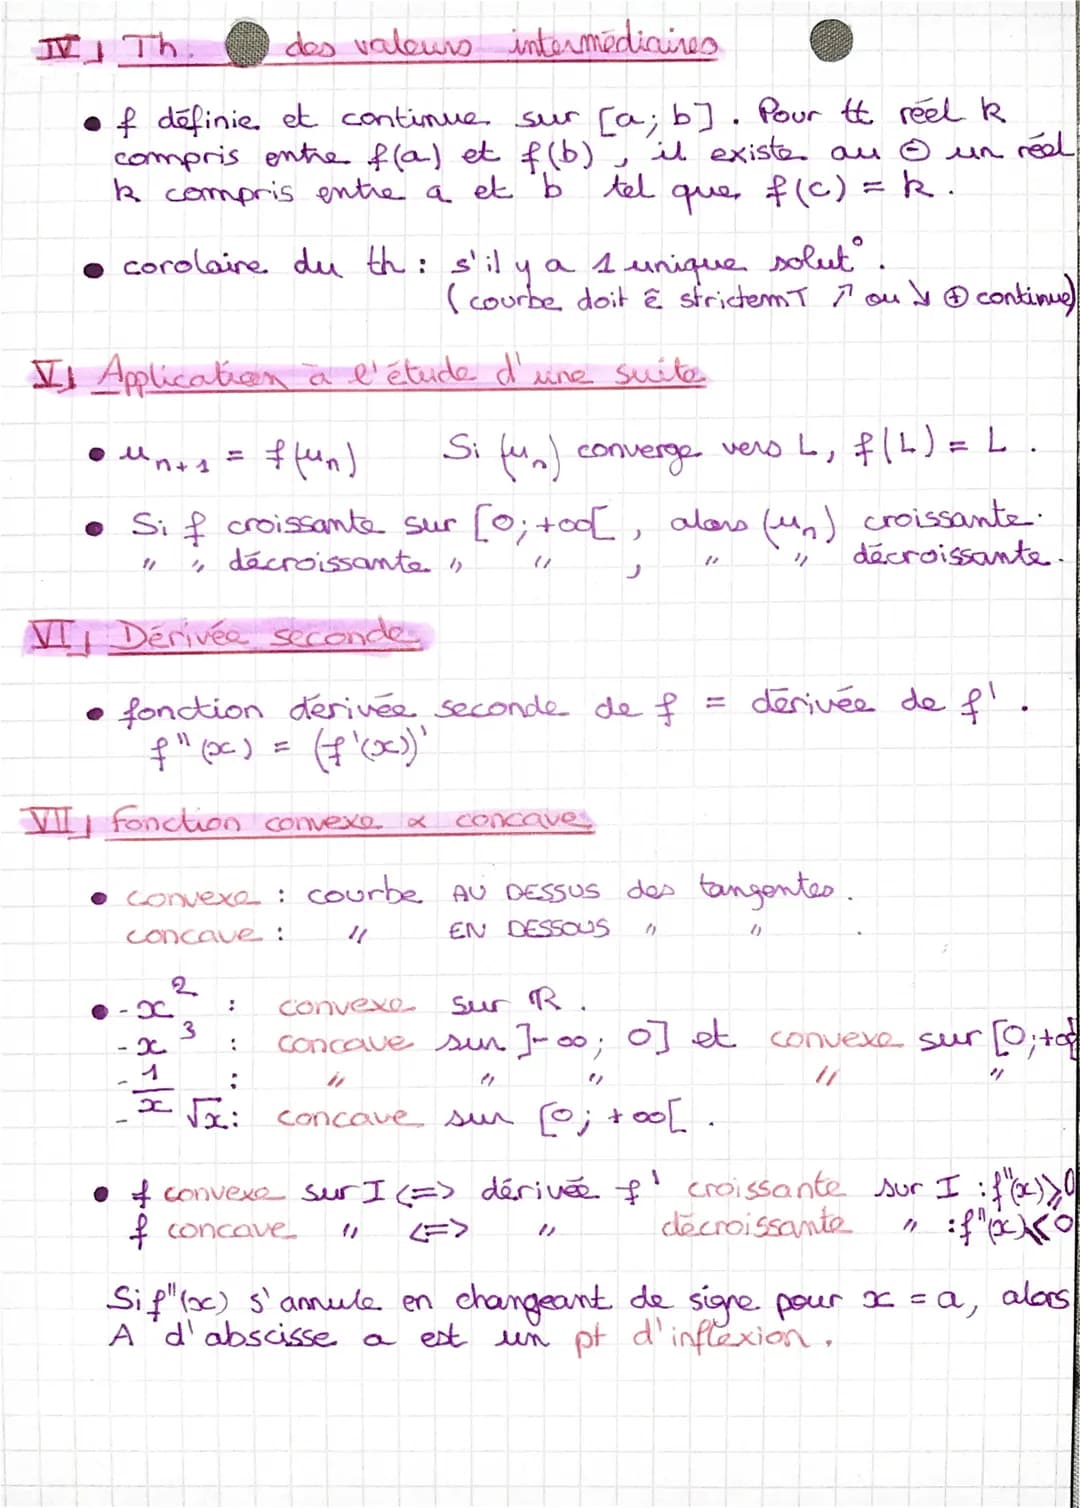 IV) Th. des valeurs intermédiaires
• f définie et continue sur [a; b]. Pour tt réel k
compris entre f(a) et f(b), il existe au ⊖ un réel
k compris entre a et b tel que f(c) = k.
• corolaire du th : s'il y a 1 unique solut°.
(courbe doit ê strictemT ↗ ou ↘ ⊕ continue)
V) Application à l'étude d'une suite
• un+1 = f(un) Si (un) converge vers L, f(L) = L.
• Si f croissante sur [0; +∞[, alors (un) croissante.
" " décroissante " " , " " décroissante.
VI) Dérivée seconde
• fonction dérivée seconde de f = dérivée de f'.
f"(x) = (f'(x))'
VII) Fonction convexe & concave
• convexe : courbe AU DESSUS des tangentes.
concave : " EN DESSOUS " " .
• - x² : convexe sur ℝ.
- x³ : concave sur ]-∞; 0] et convexe sur [0; +∞[
- 1/x : " " " " "
- √x : concave sur [0; +∞[.
• f convexe sur I <=> dérivée f' croissante sur I : f"(x)⩾0
f concave " <=> " décroissante " : f"(x)⩽0
Si f"(x) s'annule en changeant de signe pour x = a, alors
A d'abscisse a est un pt d'inflexion.